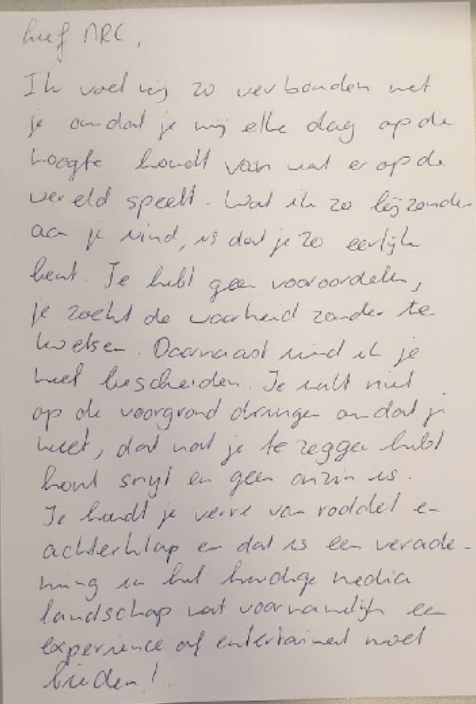 Lief NRC,
Ik voel mij zo verbonden met
je omdat je mij elke dag op de
hoogte houdt van wat er op de
wereld speelt. Wat ik zo bijzonder
aan je vind, is dat je zo eerlijk
bent. Je hebt geen vooroordelen,
je zoekt de waarheid zonder te
kwetsen. Daarnaast vind ik je
heel bescheiden. Je wilt niet
op de voorgrond dringen omdat je
weet, dat wat je te zeggen hebt
hout snijt en geen onzin is.
Je houdt je verre van roddel en
achterklap en dat is een verade-
ming in het huidige media
landschap wat voornamelijk een
experience of entertainment moet
bieden!